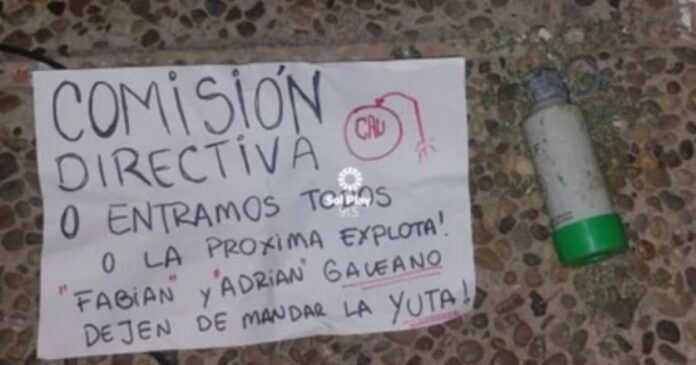 COMISIÓN
DIRECTIVA
CAU
O ENTRAMOS TODOS
O LA PROXIMA EXPLOTA!
"FABIAN" Y "ADRIAN" GALEANO
DEJEN DE MANDAR LA YUTA!
Sol Play
91.5